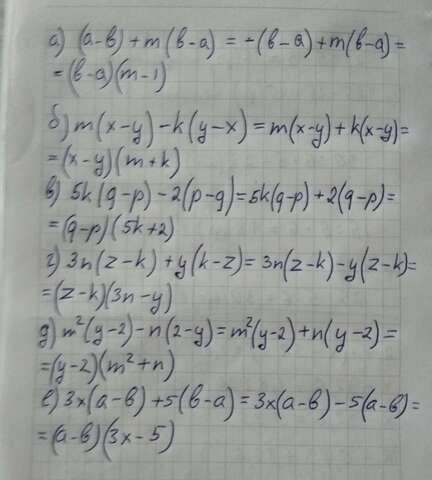 а) (a-в) + m (в-a) = -(в-a) + m(в-a) =
= (в-a)(m-1)
б) m(x-y) - k(y-x) = m(x-y) + k(x-y) =
= (x-y)(m+k)
в) 5k(q-p) - 2(p-q) = 5k(q-p) + 2(q-p) =
= (q-p)(5k+2)
г) 3n(z-k) + y(k-z) = 3n(z-k) - y(z-k) =
= (z-k)(3n-y)
д) m²(y-2) - n(2-y) = m²(y-2) + n(y-2) =
= (y-2)(m²+n)
е) 3x(a-в) + 5(в-a) = 3x(a-в) - 5(a-в) =
= (a-в)(3x-5)